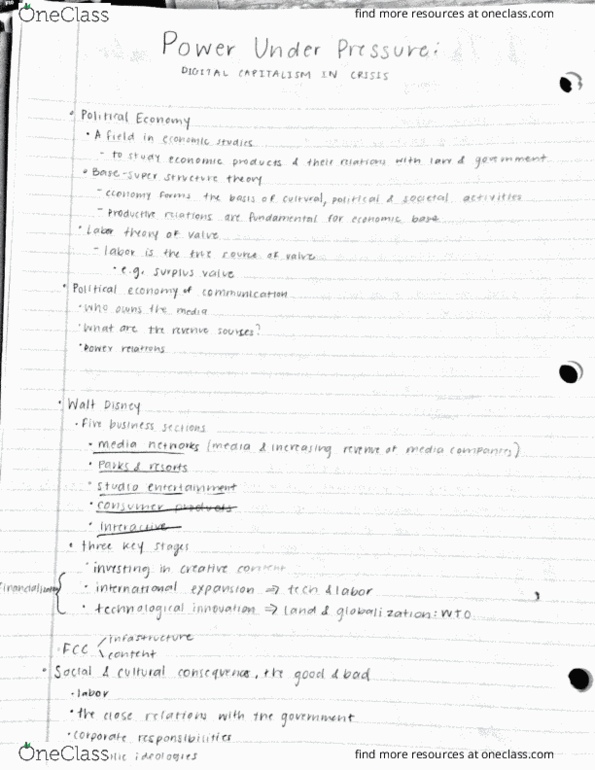 OneClass
find more resources at oneclass.com
Power Under Pressure:
DIGITAL CAPITALISM IN CRISIS
• Political Economy
• A field in economic studies
- to study economic products & their relations with law & government
• Base-super structure theory
- economy forms the basis of cultural, political & societal activities
- productive relations are fundamental for economic base
• Labor theory of value
- labor is the true source of value
• e.g. surplus value
• Political economy of communication
• who owns the media
• What are the revenue sources?
• power relations
• Walt Disney
• Five business sections
• media networks (media & increasing revenue of media companies)
• Parks & resorts
• studio entertainment
• consumer products
• interactive
• three key stages
• investing in creative content
• international expansion ⇒ tech & labor
• technological innovation ⇒ land & globalization: WTO
• FCC
infastructure
content
• Social & cultural consequences, the good & bad
• labor
• the close relations with the government
• corporate responsibilities
OneClass
ideologies
find more resources at oneclass.com